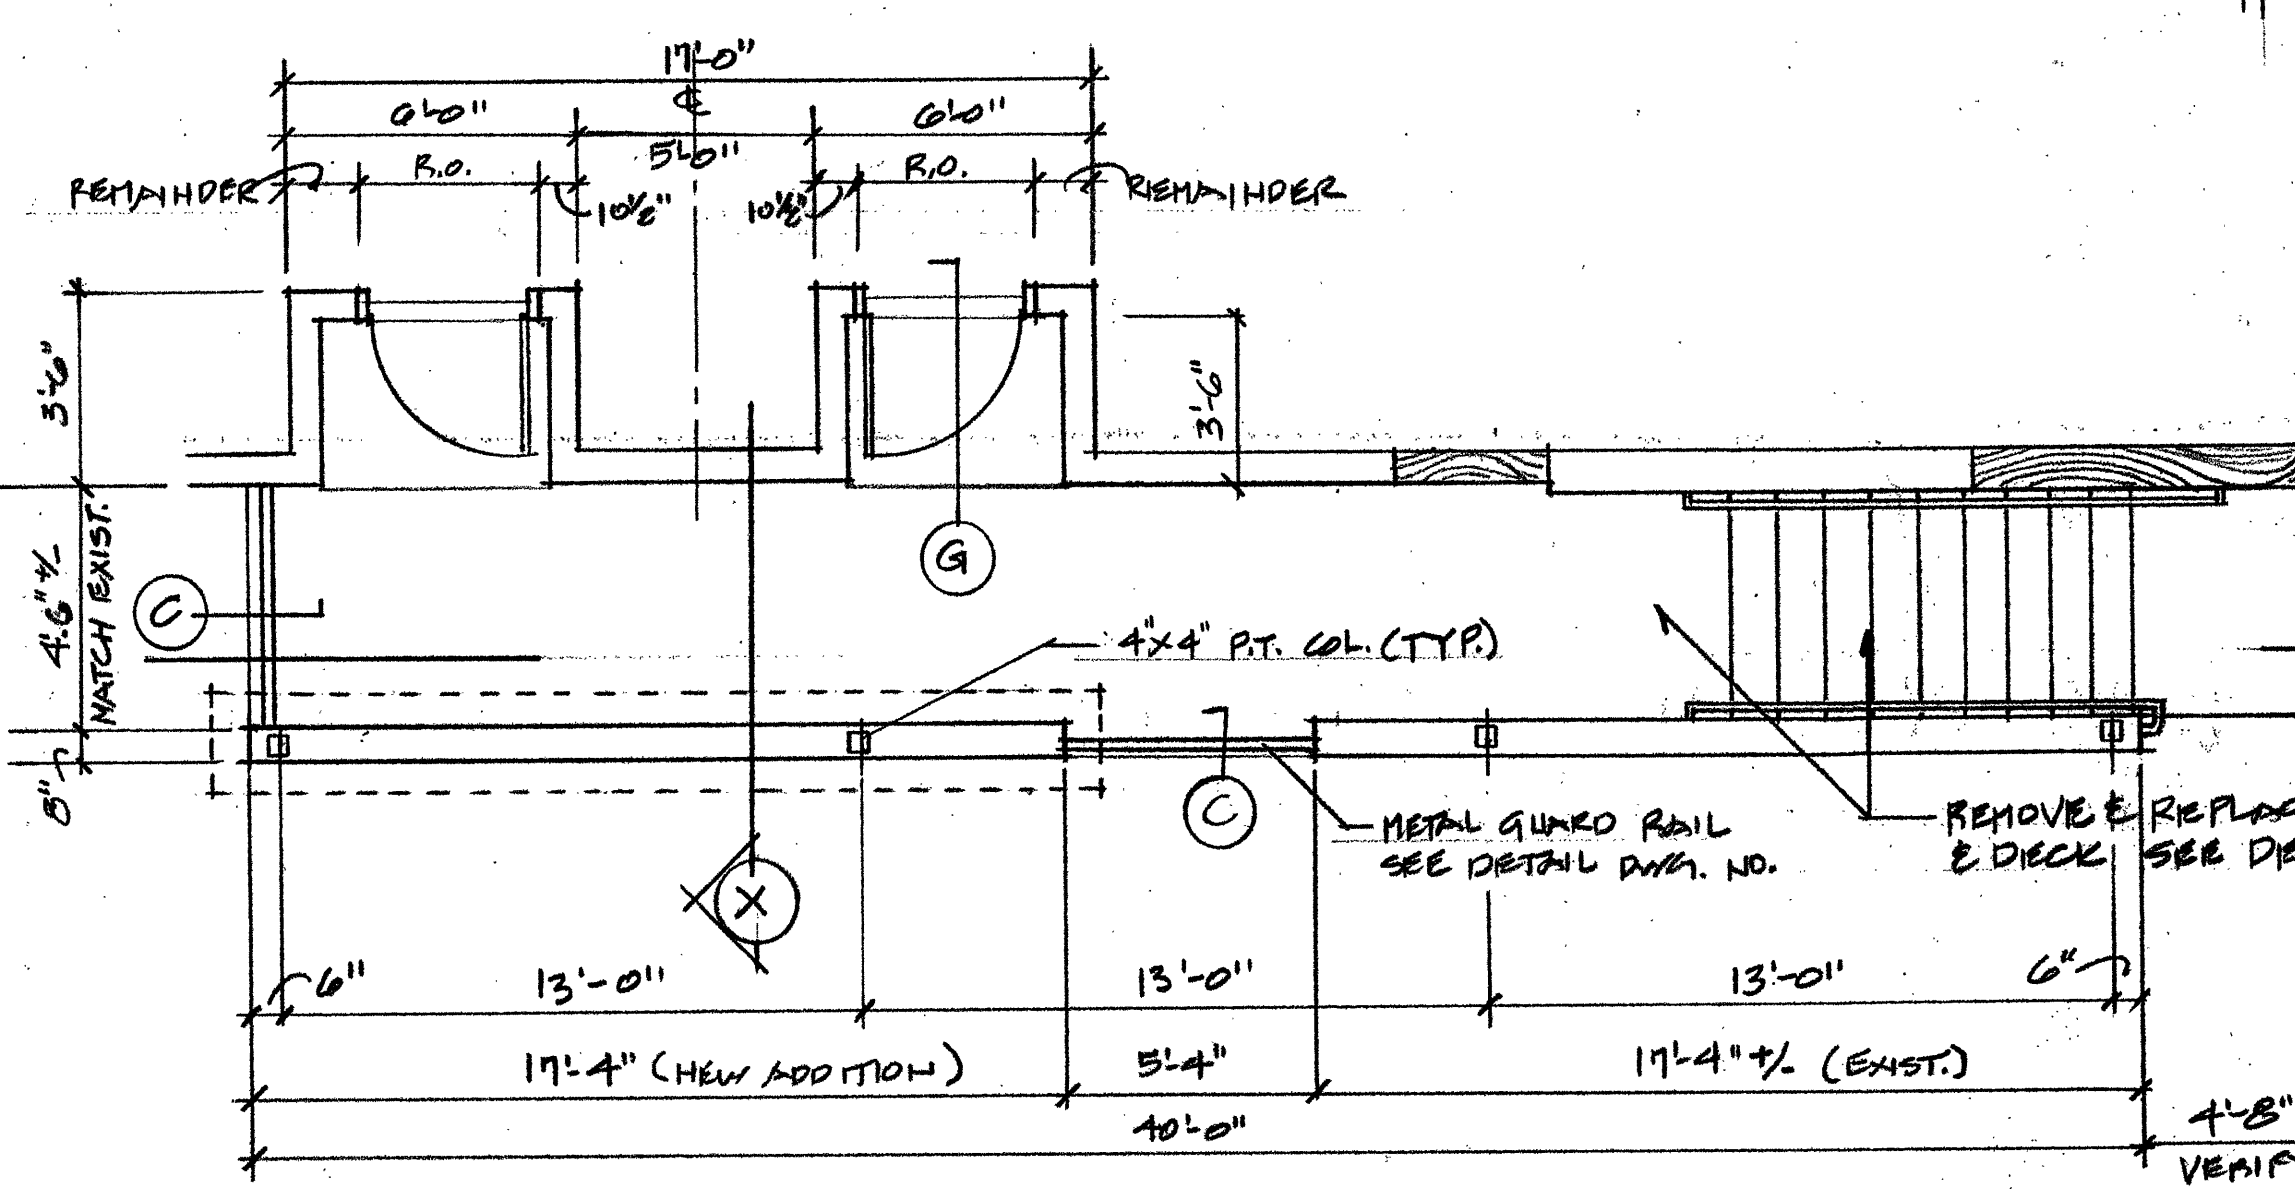 17'-0"
℄
6'-0"
6'-0"
5'-0"
REMAINDER
R.O.
10½"
10½"
R.O.
REMAINDER
3'-6"
3'-6"
4'-6" +/-
MATCH EXIST.
8"
C
G
4"x4" P.T. COL. (TYP.)
C
METAL GUARD RAIL
SEE DETAIL DWG. NO.
REMOVE & REPLAC
& DECK SEE DE
X
6"
13'-0"
13'-0"
13'-0"
6"
17'-4" (NEW ADDITION)
5'-4"
17'-4" +/- (EXIST.)
40'-0"
4'-8"
VERIF